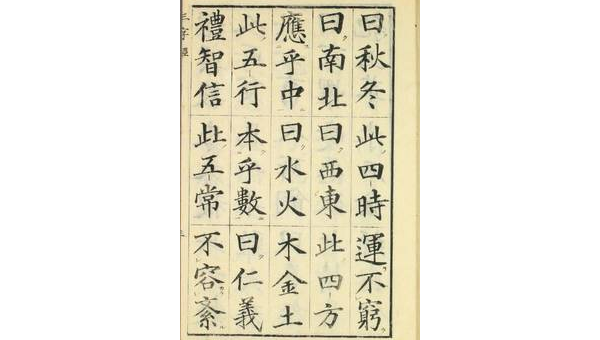 曰秋冬此四時運不窮
曰南北曰西東此四方
應乎中曰水火木金土
此五行本乎數曰仁義
禮智信此五常不容紊
三字經